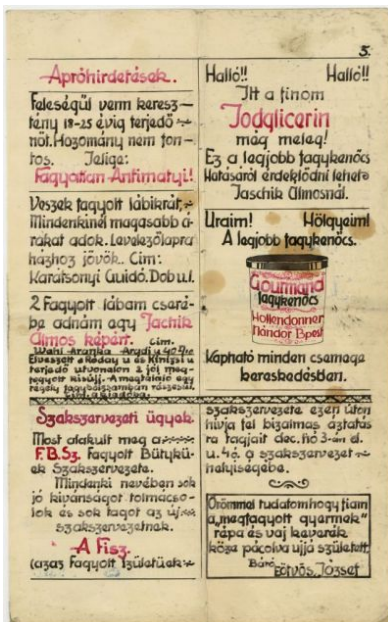 5.
Apróhirdetések.
Feleségül venn keresz-
tény 18-25 évig terjedő
nőt. Hozomány nem fon-
tos. Jelige:
Fagyatlan Antimatyi!
Veszek fagyott lábikrát,
Mindenkinél magasabb á-
rakat adok. Levelezőlapra
házhoz jövök.. Cím:
Karátsonyi Guidó. Dob u 1.
2 Fagyott lábam cseré-
be adnám egy Jachik
Álmos képért. Cím.
Wahl Aranka Aradi u
Elveszett a Róday u és Kinizsi u
terjedő útvonalon 2 jól meg-
fagyott kisujj. A megtaláló egy
Szakszervezeti ügyek.
Most alakult meg a
F.B.Sz. Fagyott Bütykü-
ek Szakszervezete.
Mindenki nevében sok
jó kívánságot tolmácso-
lok és sok tagot az új
szakszervezetnek.
A Fisz.
(azaz Fagyott Ízületűek
Halló!! Halló!!
Itt a finom
Jodglicerin
még meleg!
Ez a legjobb fagykenőcs
Hatásáról érdeklődni lehet
Jaschik Álmosnál.
Uraim! Hölgyeim!
A legjobb fagykenőcs.
Gourmand
fagykenőcs
Hollendonner
Nándor Bpest
Kapható minden csemege
kereskedésben.
szakszervezete ezen úton
hívja fel bizalmas áztatás
ra tagjait dec. hó 3-án d.
u. 4ó. a szakszervezet
helyiségébe.
Örömmel tudatom hogy fiam
a „megfagyott gyermek”
répa és vaj keverék
közé pácolva ujjá született.
Báró
Eötvös József